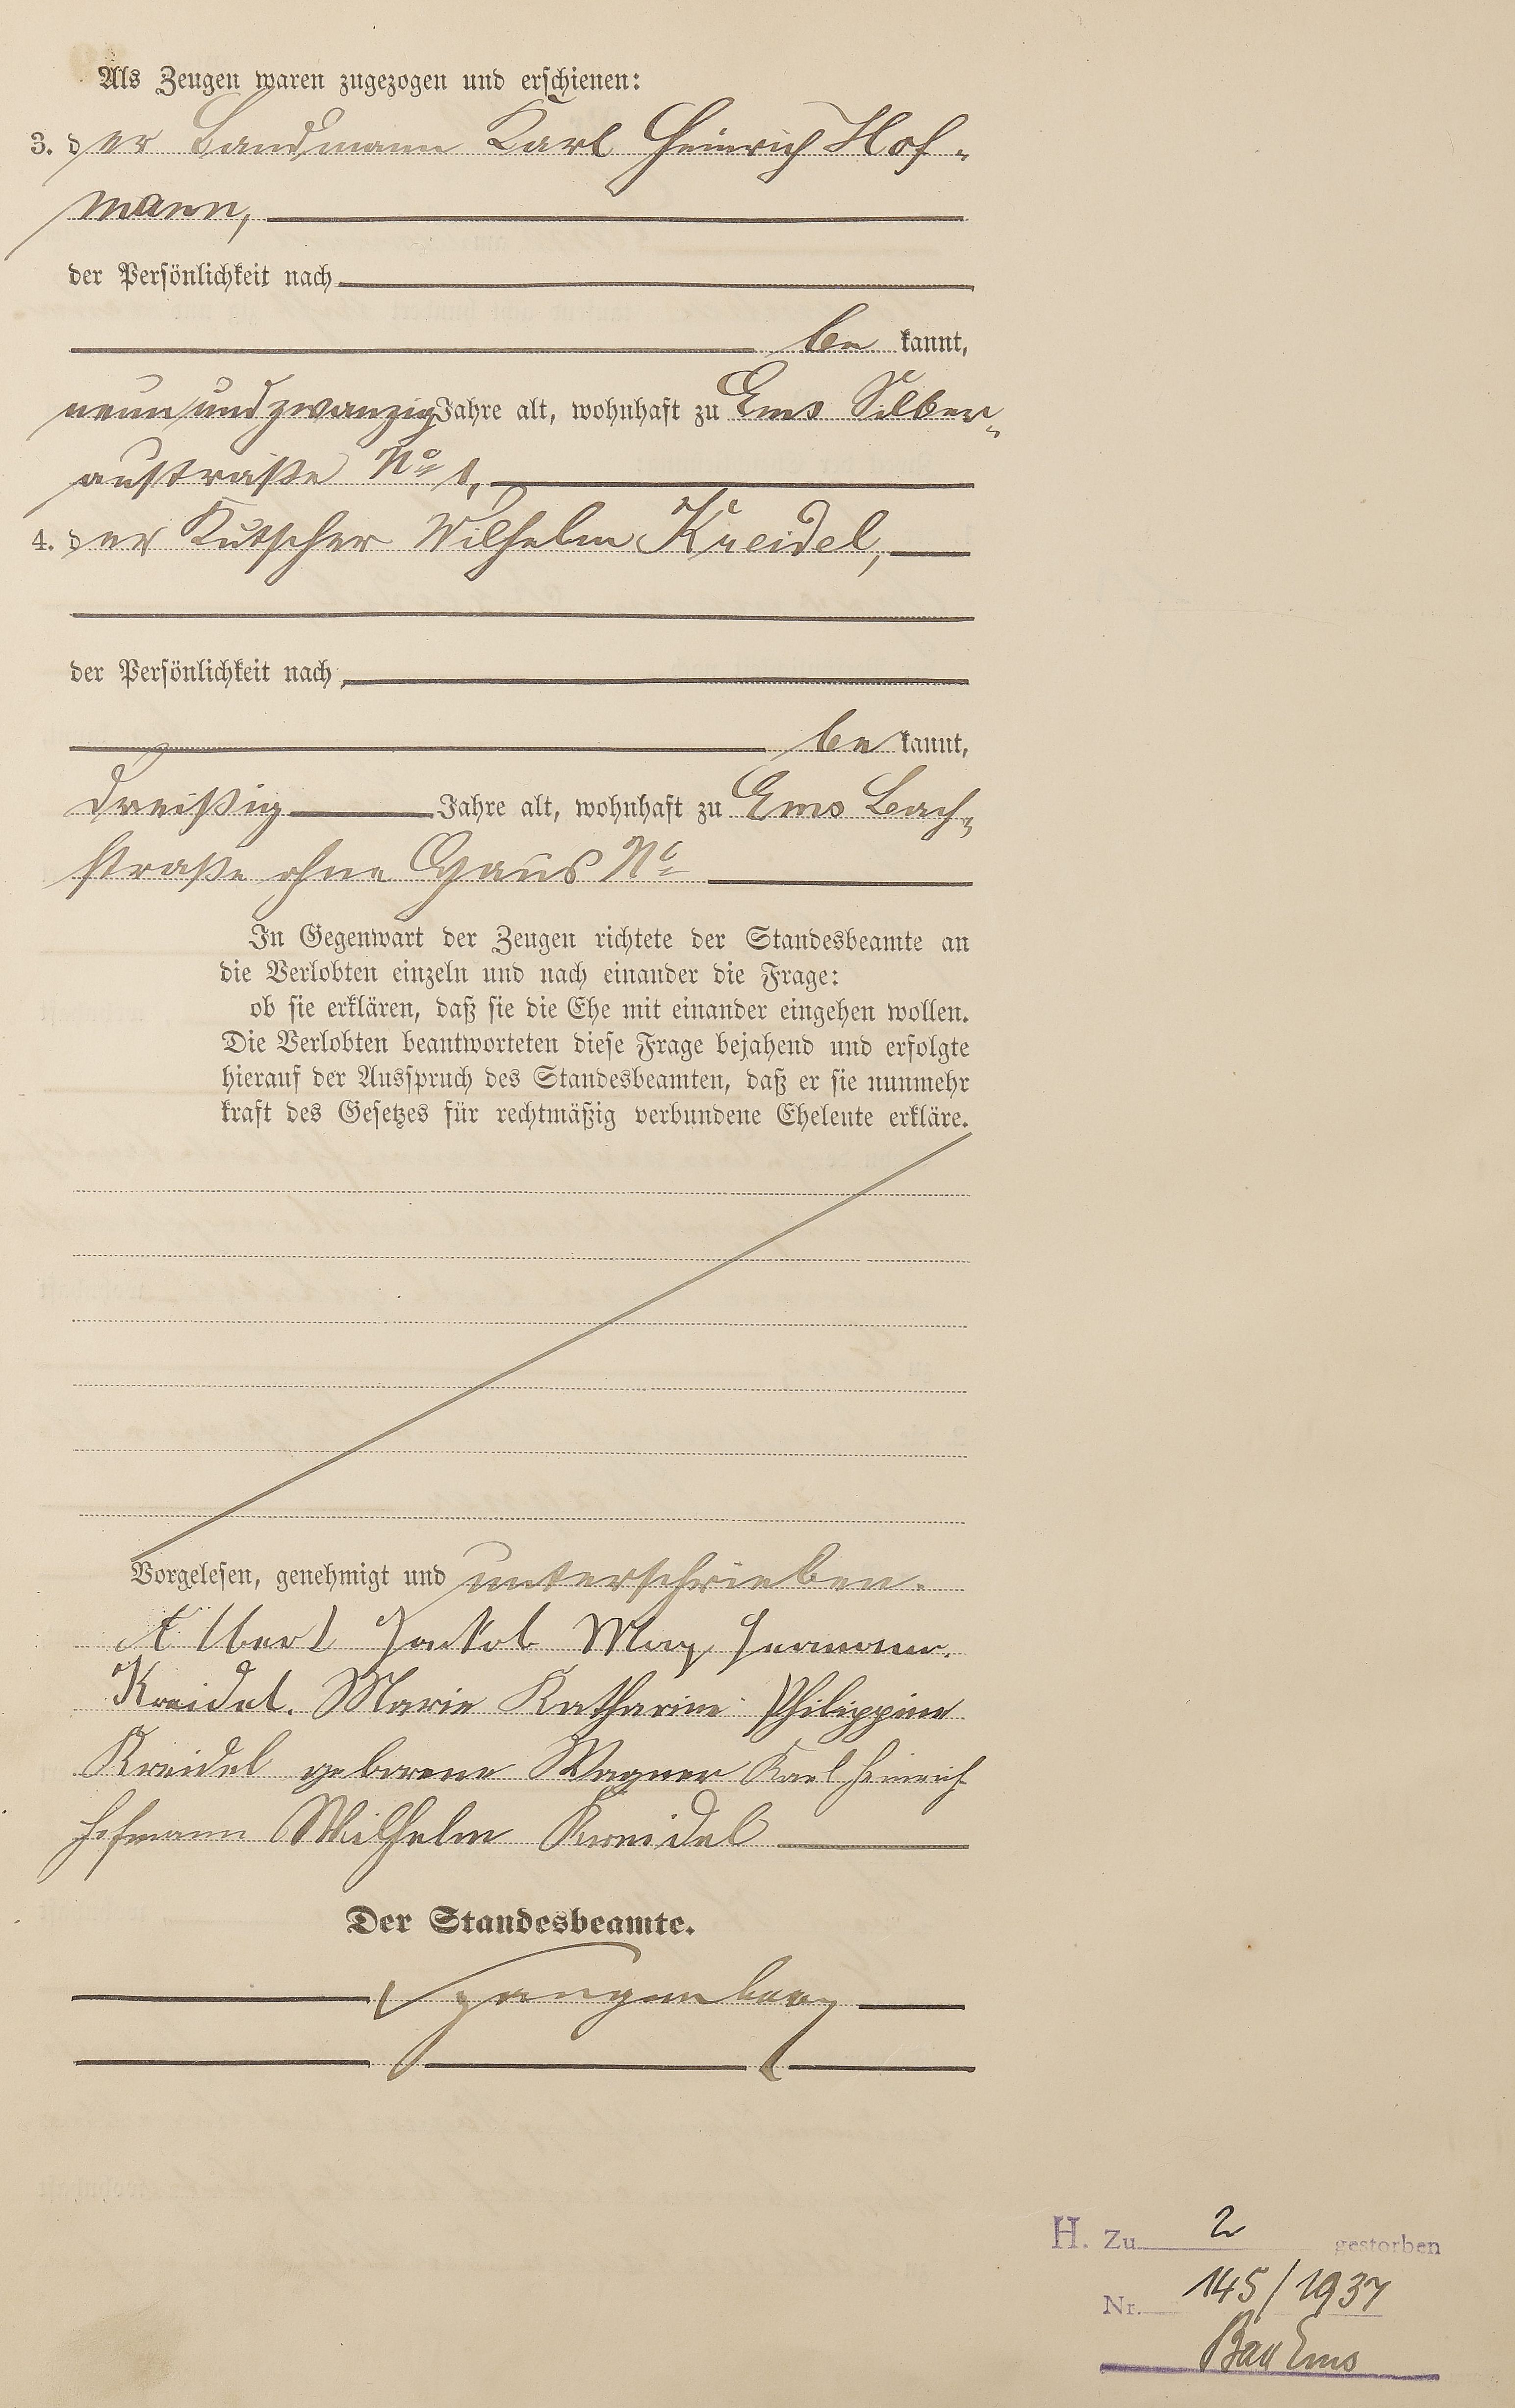 Als Zeugen waren zugezogen und erschienen:
3. der Landmann Karl Heinrich Hof-
mann,
der Persönlichkeit nach
be kannt,
neun und zwanzig Jahre alt, wohnhaft zu Ems Silber-
austraße No 1,
4. der Kutscher Wilhelm Kreidel,
der Persönlichkeit nach
be kannt,
dreißig Jahre alt, wohnhaft zu Ems Bach-
straße ohne Haus No
In Gegenwart der Zeugen richtete der Standesbeamte an
die Verlobten einzeln und nach einander die Frage:
ob sie erklären, daß sie die Ehe mit einander eingehen wollen.
Die Verlobten beantworteten diese Frage bejahend und erfolgte
hierauf der Ausspruch des Standesbeamten, daß er sie nunmehr
kraft des Gesetzes für rechtmäßig verbundene Eheleute erkläre.
Vorgelesen, genehmigt und unterschrieben.
Albert Jakob Max Hermann
Kreidel. Marie Katharine Philippine
Kreidel geborene Wagner Karl Heinrich
Hofmann Wilhelm Kreidel
Der Standesbeamte.
Spangenberg
H. Zu 2 gestorben
Nr. 145/1937
Bad Ems